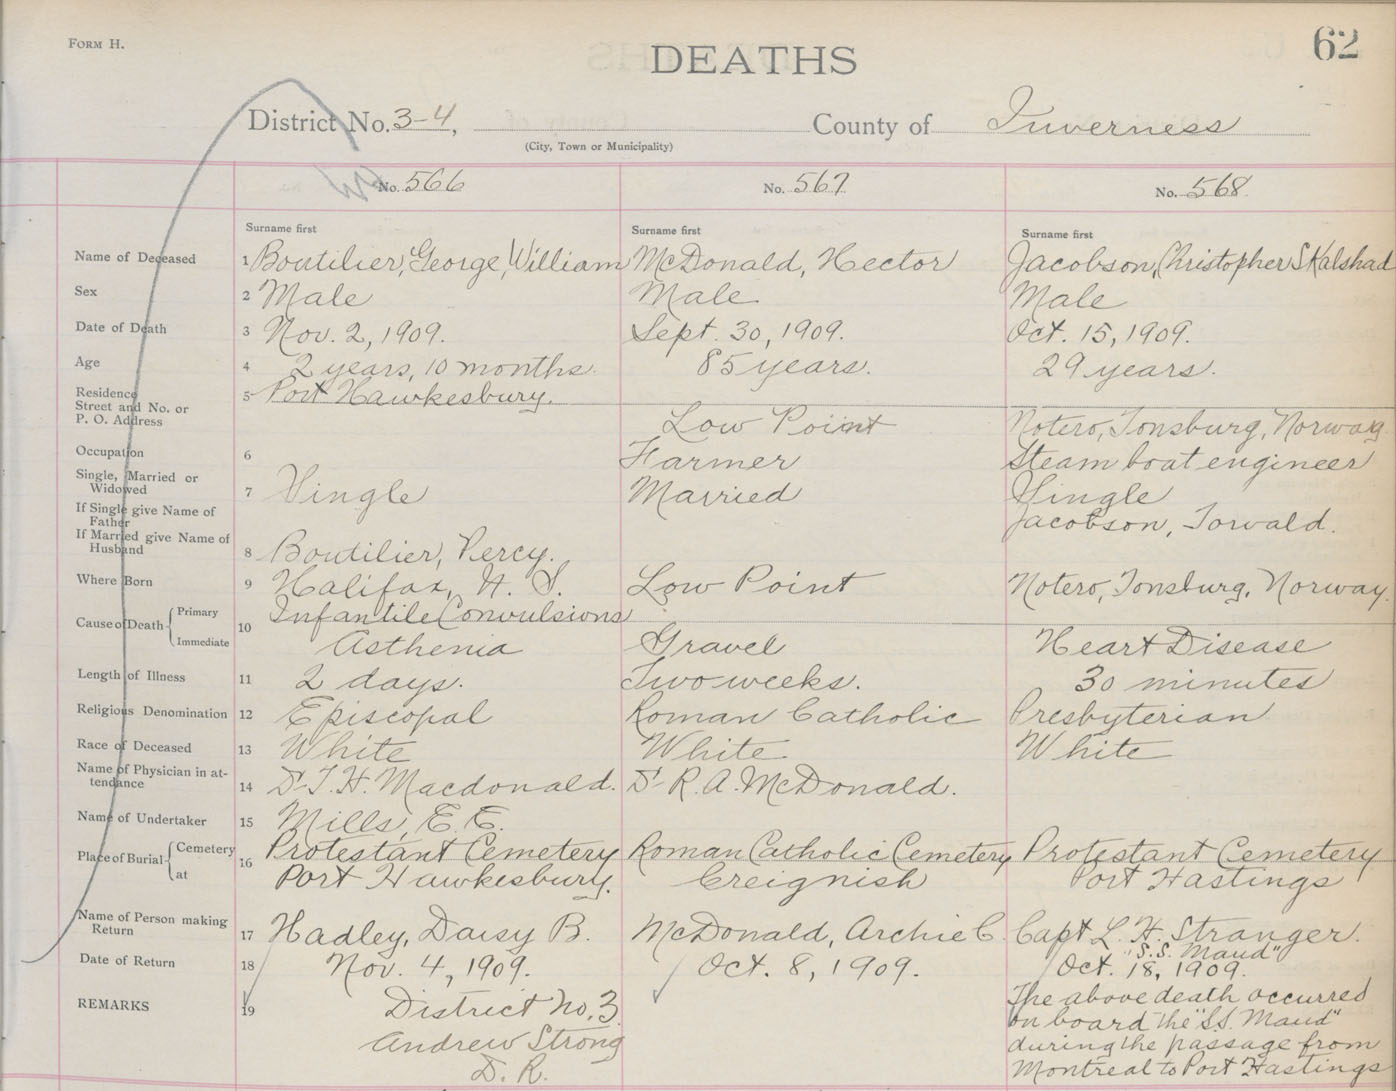 FORM H.
DEATHS
62
District No. 3-4, County of Inverness
(City, Town or Municipality)
No. 566 No. 567 No. 568
Surname first Surname first Surname first
Name of Deceased 1 Boutilier, George, William McDonald, Hector Jacobson, Christopher S Kalshad
Sex 2 Male Male Male
Date of Death 3 Nov. 2, 1909. Sept. 30, 1909. Oct. 15, 1909.
Age 4 2 years, 10 months. 85 years. 29 years.
Residence 5 Port Hawkesbury.
Street and No. or
P. O. Address Low Point Notero, Tonsburg, Norway
Occupation 6 Farmer Steam boat engineer
Single, Married or
Widowed 7 Single Married Single
If Single give Name of
Father Jacobson, Torvald.
If Married give Name of
Husband 8 Boutilier, Percy.
Where Born 9 Halifax, N. S. Low Point Notero, Tonsburg, Norway.
Cause of Death Primary Infantile Convulsions
10
Immediate Asthenia Gravel Heart Disease
Length of Illness 11 2 days. Two weeks. 30 minutes
Religious Denomination 12 Episcopal Roman Catholic Presbyterian
Race of Deceased 13 White White White
Name of Physician in at-
tendance 14 Dr T. H. Macdonald. Dr R. A. McDonald.
Name of Undertaker 15 Mills, E. E.
Place of Burial Cemetery 16 Protestant Cemetery Roman Catholic Cemetery Protestant Cemetery
at Port Hawkesbury. Creignish Port Hastings
Name of Person making
Return 17 Hadley, Daisy B. McDonald, Archie C. Capt L. H. Stranger.
"S.S. Maud"
Date of Return 18 Nov. 4, 1909. Oct. 8, 1909. Oct. 18, 1909.
REMARKS 19 District No. 3 The above death occurred
on board the "S.S. Maud"
Andrew Strong during the passage from
D. R. Montreal to Port Hastings